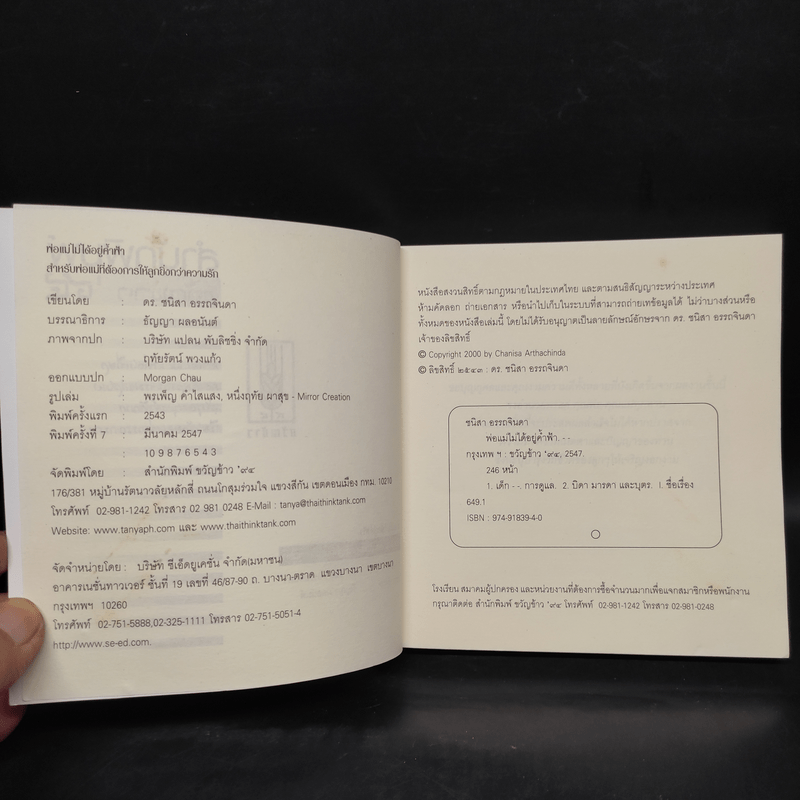 พ่อแม่ไม่ได้อยู่ค้ำฟ้า
สำหรับพ่อแม่ที่ต้องการให้ลูกยิ่งกว่าความรัก
เขียนโดย : ดร. ชนิสา อรรถจินดา
บรรณาธิการ : ธัญญา ผลอนันต์
ภาพจากปก : บริษัท แปลน พับลิชชิ่ง จำกัด
ฤทัยรัตน์ พวงแก้ว
ออกแบบปก : Morgan Chau
รูปเล่ม : พรเพ็ญ คำไสแสง, หนึ่งฤทัย ผาสุข - Mirror Creation
พิมพ์ครั้งแรก : 2543
พิมพ์ครั้งที่ 7 : มีนาคม 2547
: 10 9 8 7 6 5 4 3
จัดพิมพ์โดย : สำนักพิมพ์ ขวัญข้าว '๙๔
176/381 หมู่บ้านรัตนาวลัยหลักสี่ ถนนโกสุมร่วมใจ แขวงสีกัน เขตดอนเมือง กทม. 10210
โทรศัพท์ 02-981-1242 โทรสาร 02 981 0248 E-Mail : tanya@thaithinktank.com
Website: www.tanyaph.com และ www.thaithinktank.com
จัดจำหน่ายโดย : บริษัท ซีเอ็ดยูเคชั่น จำกัด(มหาชน)
อาคารเนชั่นทาวเวอร์ ชั้นที่ 19 เลขที่ 46/87-90 ถ. บางนา-ตราด แขวงบางนา เขตบางนา
กรุงเทพฯ 10260
โทรศัพท์ 02-751-5888,02-325-1111 โทรสาร 02-751-5051-4
http://www.se-ed.com.
หนังสือสงวนสิทธิ์ตามกฎหมายในประเทศไทย และตามสนธิสัญญาระหว่างประเทศ
ห้ามคัดลอก ถ่ายเอกสาร หรือนำไปเก็บในระบบที่สามารถถ่ายเทข้อมูลได้ ไม่ว่าบางส่วนหรือ
ทั้งหมดของหนังสือเล่มนี้ โดยไม่ได้รับอนุญาตเป็นลายลักษณ์อักษรจาก ดร. ชนิสา อรรถจินดา
เจ้าของลิขสิทธิ์
© Copyright 2000 by Chanisa Arthachinda
© ลิขสิทธิ์ ๒๕๔๓ : ดร. ชนิสา อรรถจินดา
ชนิสา อรรถจินดา
พ่อแม่ไม่ได้อยู่ค้ำฟ้า. - -
กรุงเทพ ฯ : ขวัญข้าว '๙๔, 2547.
246 หน้า
1. เด็ก - -. การดูแล. 2. บิดา มารดา และบุตร. I. ชื่อเรื่อง
649.1
ISBN : 974-91839-4-0
โรงเรียน สมาคมผู้ปกครอง และหน่วยงานที่ต้องการซื้อจำนวนมากเพื่อแจกสมาชิกหรือพนักงาน
กรุณาติดต่อ สำนักพิมพ์ ขวัญข้าว '๙๔ โทรศัพท์ 02-981-1242 โทรสาร 02-981-0248